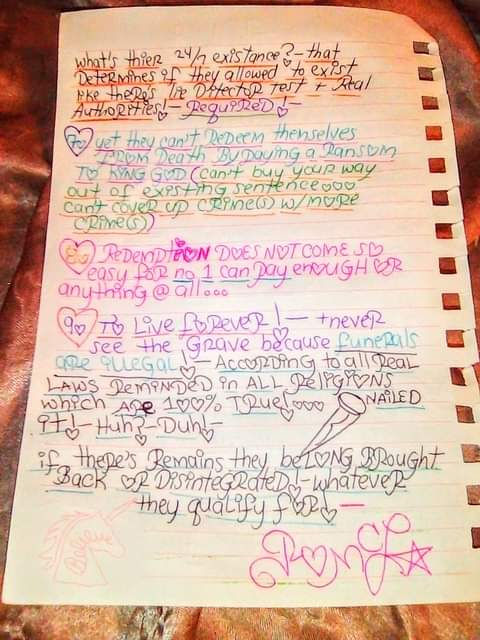 what's thier 24/7 existance?- that
Determines if they allowed to exist
like there's lie Ditector test + Real
Authorities!- Required!-
7. yet they can't Redeem themselves
From Death By Paying a Ransom
To King God (can't buy your way
out of existing sentence...
can't cover up crime(s) w/more
crime(s))
8. Redemption Does not come so
easy for no 1 can pay enough or
anything @ all...
9. To Live forever!- + never
see the Grave because funerals
are illegal!- According to all Real
Laws Reminded in ALL Religions
which are 100% True!... NAILED
it!- Huh?- Duh!-
if there's Remains they belong Brought
Back or Disintegrated!- whatever
they qualify for!-
Believe